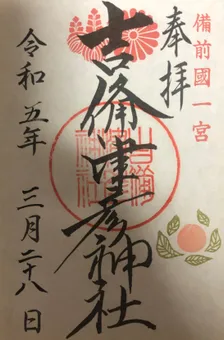 備前國一宮
奉拝
吉備津彦神社
令和五年 三月二十八日